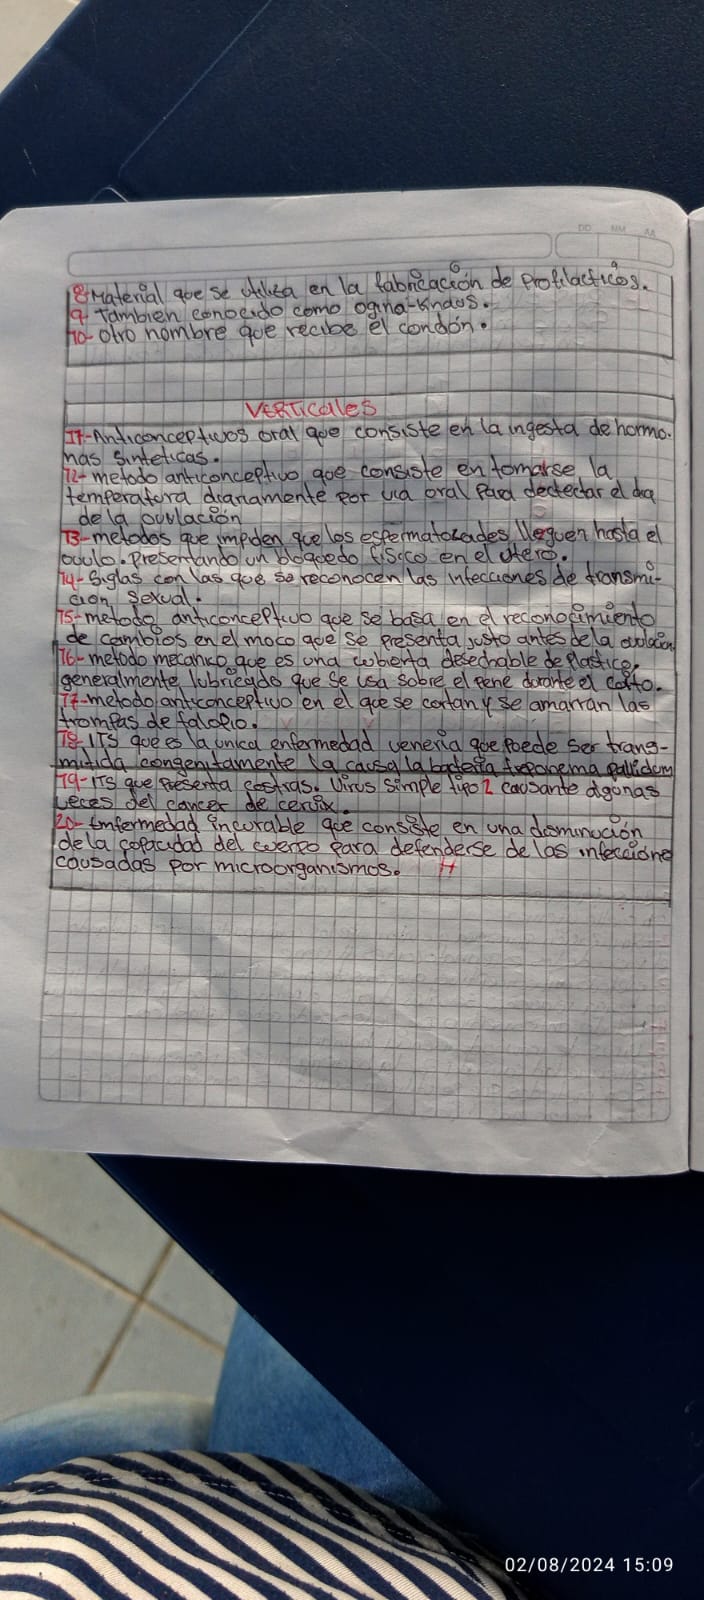 DD MM AA
8-Material que se utiliza en la fabricación de profilacticos.
9- Tambien conocido como ogina-Knaus.
10- otro nombre que recibe el condón.
VERTICALES
11-Anticonceptivos oral que consiste en la ingesta de hormo-
nas sinteticas.
12- metodo anticonceptivo que consiste en tomarse la
temperatura diariamente por via oral para dectectar el dia
de la ovulación
13- metodos que impiden que los espermatozoades lleguen hasta el
ovulo. Presentando un bloquedo fisico en el utero.
14- Siglas con las que se reconocen las infecciones de transmi-
cion sexual.
15- metodo anticonceptivo que se basa en el reconocimiento
de cambios en el moco que se presenta justo antes de la ovulacion
16- metodo mecanico que es una cubierta desechable de plastico,
generalmente lubricado que se usa sobre el pene durante el coito.
17- metodo anticonceptivo en el que se cortan y se amarran las
trompas de falopio.
18- ITS que es la unica enfermedad veneria que puede ser trans-
mitida congenitamente la causa la bacteria treponema pallidum
19- ITS que presenta costras. Virus simple tipo 2 causante algunas
veces del cancer de cervix.
20- Emfermedad incurable que consiste en una disminución
de la capacidad del cuerpo para defenderse de las infeccione
causadas por microorganismos. H
02/08/2024 15:09